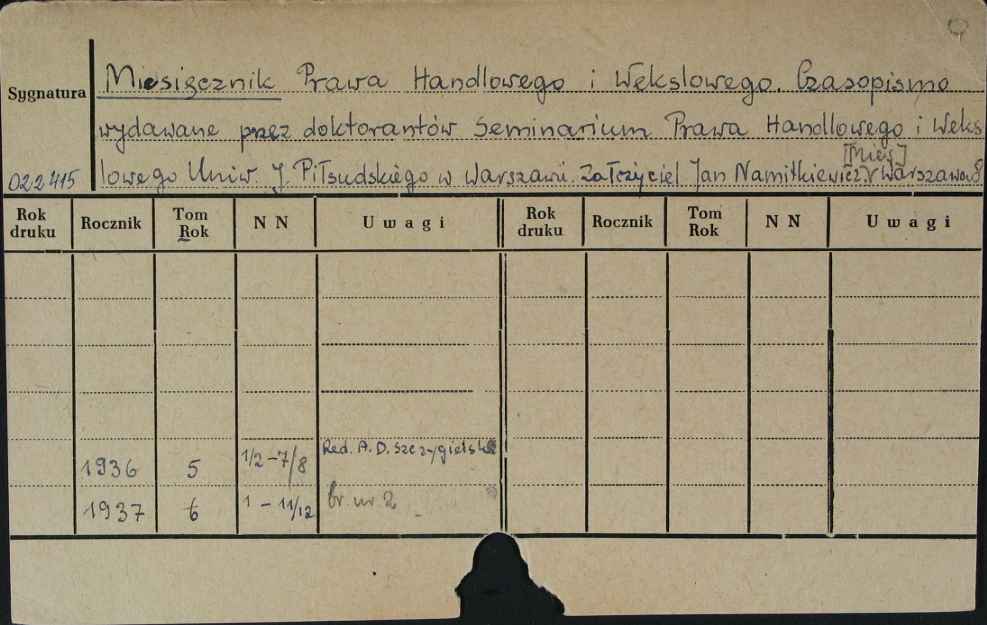 Miesięcznik Prawa Handlowego i Wekslowego. Czasopismo
Sygnatura
wydawane przez doktorantów Seminarium Prawa Handlowego i Weks
[Mies]
022415
lowego Uniw. J. Piłsudskiego w Warszawie. Założyciel Jan Namitkiewicz. Warszawa
Rok druku Rocznik Tom Rok N N Uwagi Rok druku Rocznik Tom Rok N N Uwagi
1936 5 1/2-7/8 Red. A. D. Szczygielski
1937 6 1 - 11/12 br. nr 2